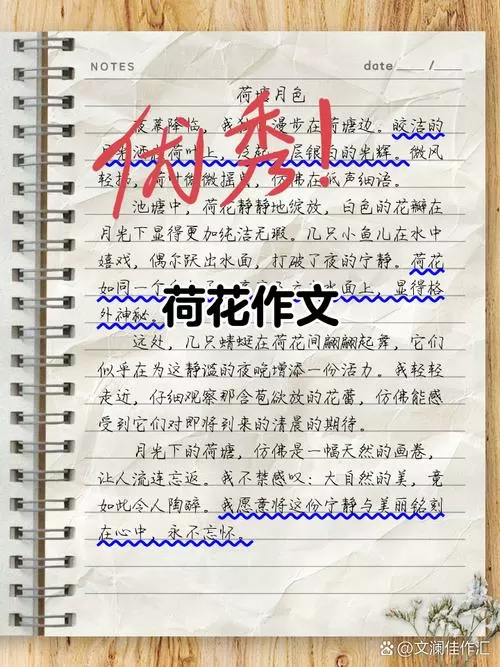 NOTES
date ____ /
荷塘月色
夜幕降临，我独 漫步在荷塘边。皎洁的
月光洒 荷叶上， 层银 的光辉。微风
轻 ，荷叶微微摇 ，仿佛在低声细语。
优秀！
池塘中，荷花静静地绽放，白色的花瓣在
月光下显得更加纯洁无瑕。几只小鱼儿在水中
嬉戏，偶尔跃出水面，打破了夜的宁静。荷花
如同一个 水面上，显得格
外神秘。
荷花作文
远处，几只蜻蜓在荷花间翩翩起舞，它们
似乎在为这静谧的夜晚增添一份活力。我轻轻
走近，仔细观察那含苞欲放的花蕾，仿佛能感
受到它们对即将到来的清晨的期待。
月光下的荷塘，仿佛是一幅天然的画卷，
让人流连忘返。我不禁感叹：大自然的美，竟
如此令人陶醉。我愿意将这份宁静与美丽铭刻
在心中，永不忘怀。
@文澜佳作汇